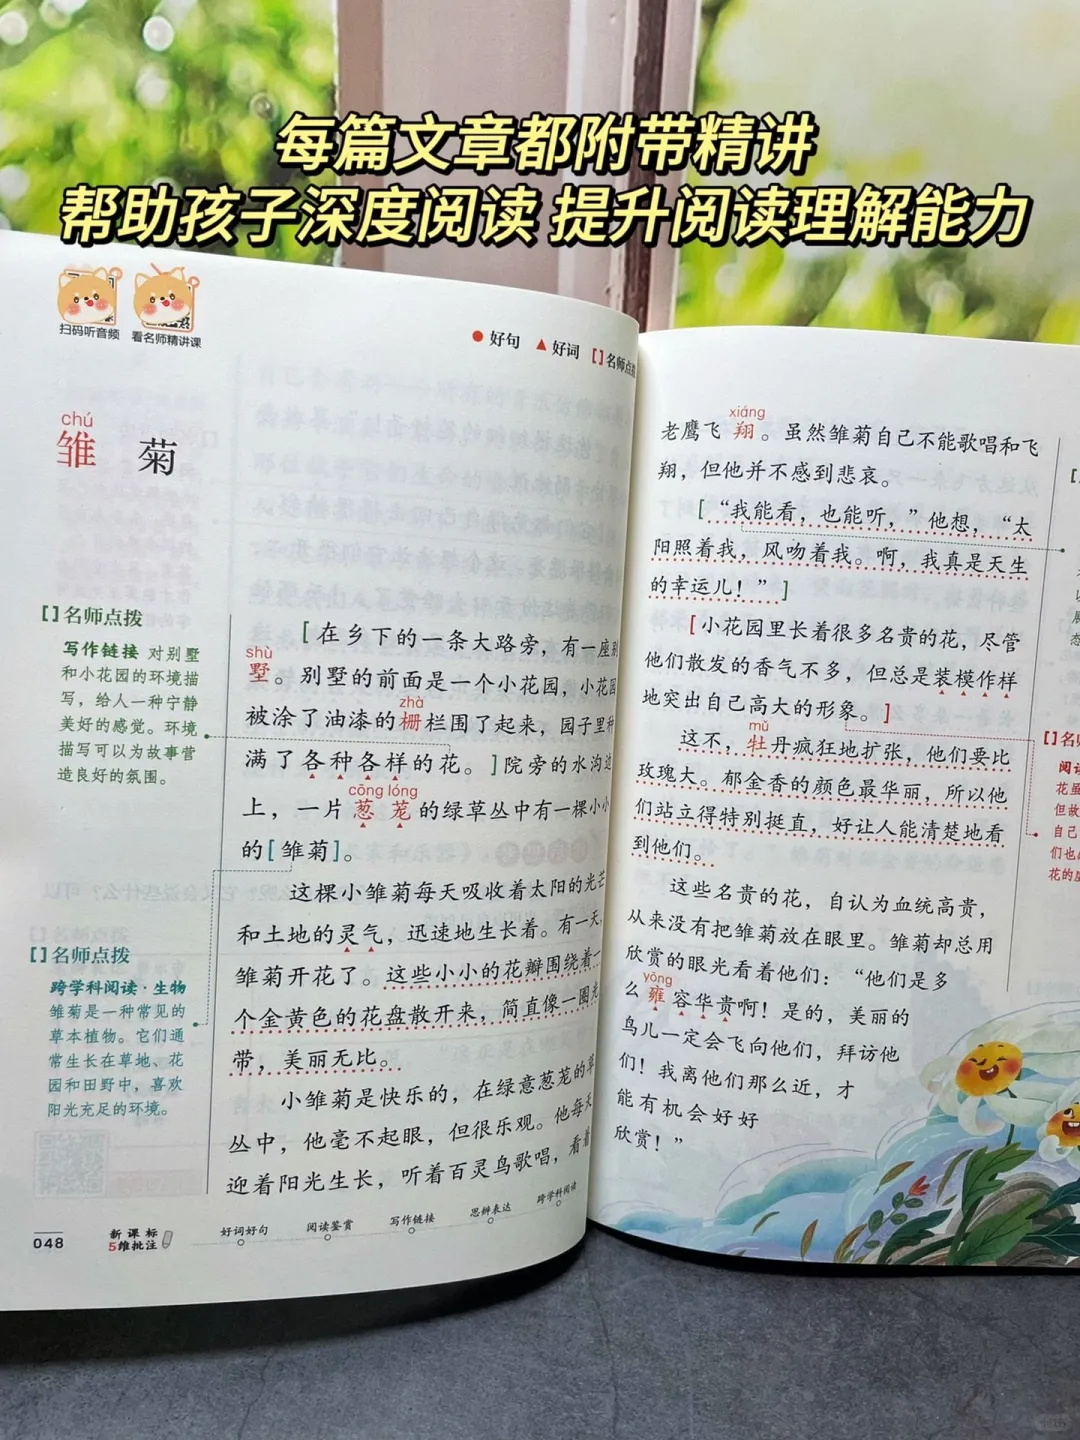 每篇文章都附带精讲
帮助孩子深度阅读 提升阅读理解能力
扫码听音频 看名师精讲课
● 好句 ▲ 好词 [ ] 名师点
chú
雏 菊
[ ] 名师点拨
写作链接 对别墅
和小花园的环境描
写，给人一种宁静
美好的感觉。环境
描写可以为故事营
造良好的氛围。
[在乡下的一条大路旁，有一座别
shù
墅。别墅的前面是一个小花园，小花园
zhà
被涂了油漆的栅栏围了起来，园子里种
满了各种各样的花。]院旁的水沟边
cōng lóng
上，一片葱茏的绿草丛中有一棵小小
的[雏菊]。
这棵小雏菊每天吸收着太阳的光芒
和土地的灵气，迅速地生长着。有一天，
雏菊开花了。这些小小的花瓣围绕着一
个金黄色的花盘散开来，简直像一圈光
带，美丽无比。
小雏菊是快乐的，在绿意葱茏的草
丛中，他毫不起眼，但很乐观。他每天
迎着阳光生长，听着百灵鸟歌唱，看着
[ ] 名师点拨
跨学科阅读·生物
雏菊是一种常见的
草本植物。它们通
常生长在草地、花
园和田野中，喜欢
阳光充足的环境。
048
新课标
5维批注
好词好句 阅读鉴赏 写作链接 思辨表达 跨学科阅读
xiáng
老鹰飞翔。虽然雏菊自己不能歌唱和飞
翔，但他并不感到悲哀。
[“我能看，也能听，”他想，“太
阳照着我，风吻着我。啊，我真是天生
的幸运儿！”]
[小花园里长着很多名贵的花，尽管
他们散发的香气不多，但总是装模作样
地突出自己高大的形象。]
mǔ
这不，牡丹疯狂地扩张，他们要比
玫瑰大。郁金香的颜色最华丽，所以他
们站立得特别挺直，好让人能清楚地看
到他们。
这些名贵的花，自认为血统高贵，
从来没有把雏菊放在眼里。雏菊却总用
欣赏的眼光看着他们：“他们是多
yōng
么雍容华贵啊！是的，美丽的
鸟儿一定会飞向他们，拜访他
们！我离他们那么近，才
能有机会好好
欣赏！”
[ ] 名
阅读
花虽
但故
自己
们也
花的